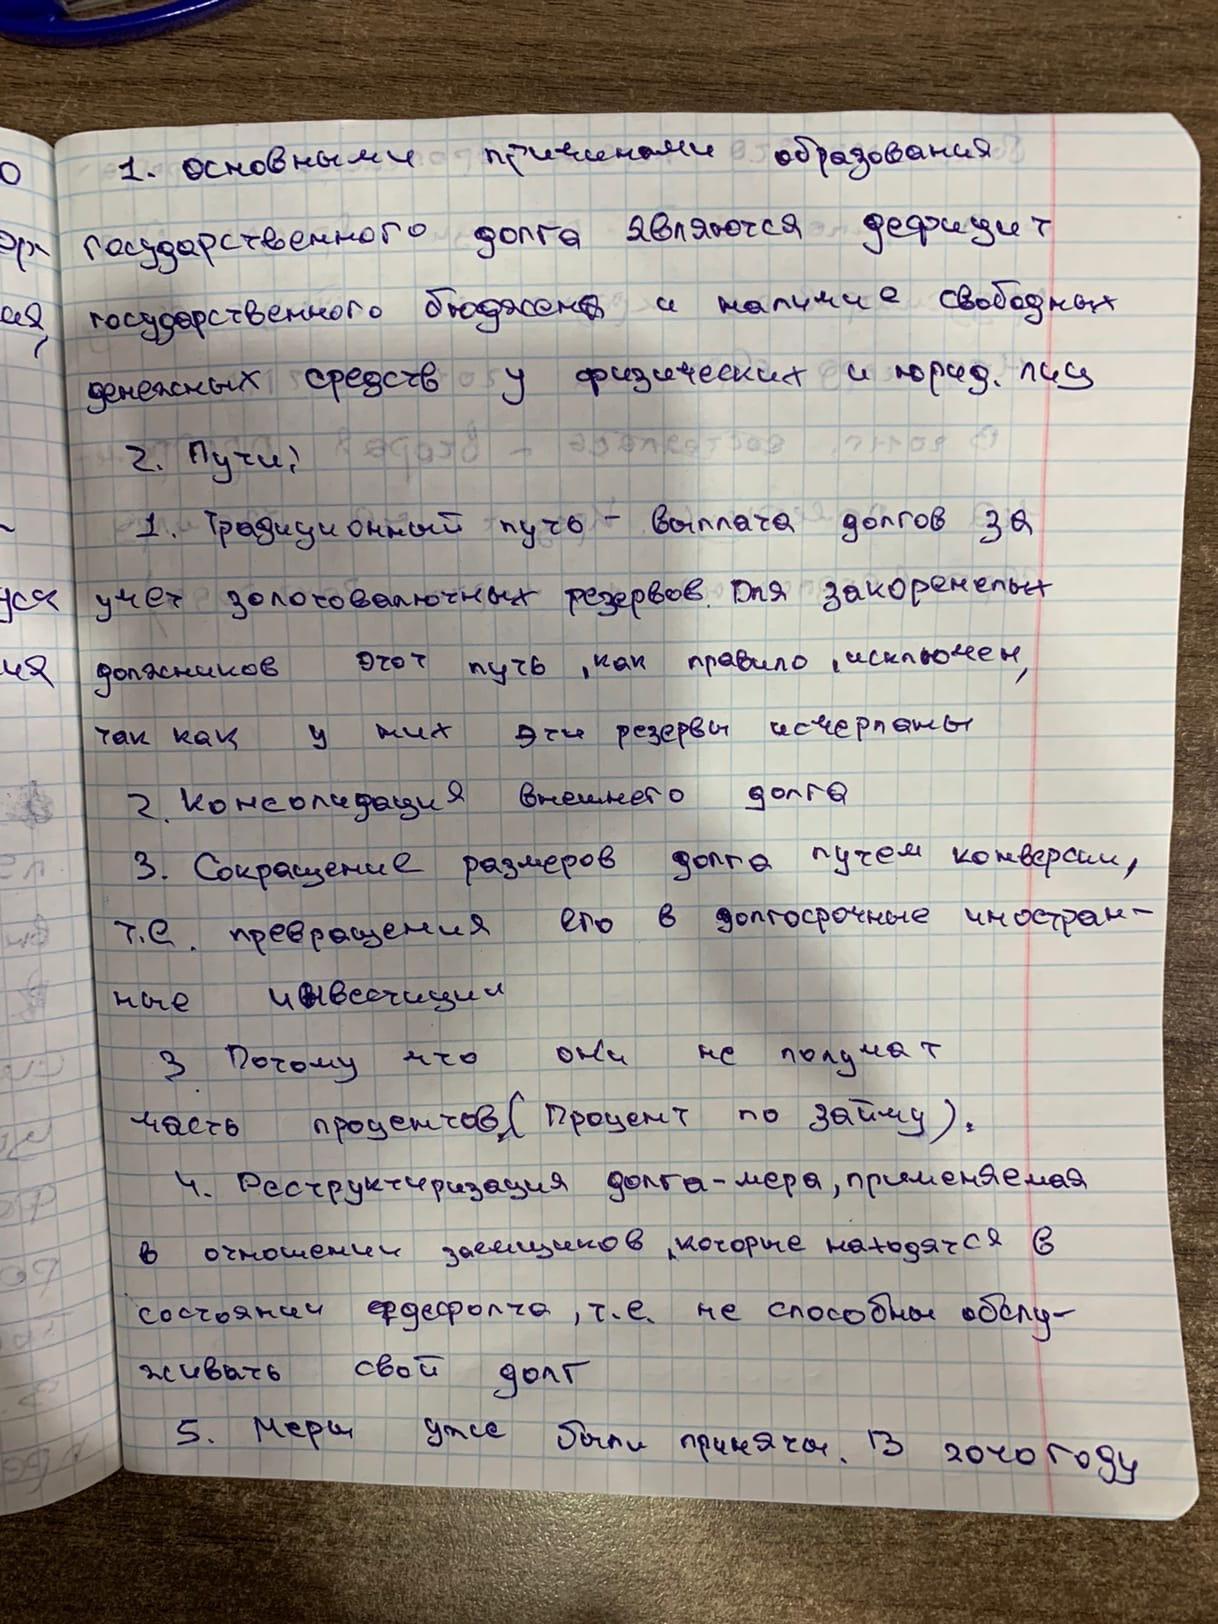 1. основными причинами образования
государственного долга являются дефицит
государственного бюджена и наличие свободных
денежных средств у физических и юрид. лиц
2. Пути:
1. Традиционный путь - выплата долгов за
учет золотовалютных резервов. Для закоренелых
должников этот путь, как правило, исключен,
так как у них эти резервы исчерпаны
2. Консолидация внешнего долга
3. Сокращение размеров долга путем конверсии,
т.е. превращения его в долгосрочные иностран-
ные инвестиции
3 Потому что они не получат
часть процентов (Процент по займу).
4. Реструктиризация долга-мера, применяемая
в отношении заемщиков, которые находятся в
состоянии дефолта, т.е. не способны обслу-
живать свой долг
5. Меры уже были приняты. В 2020 году